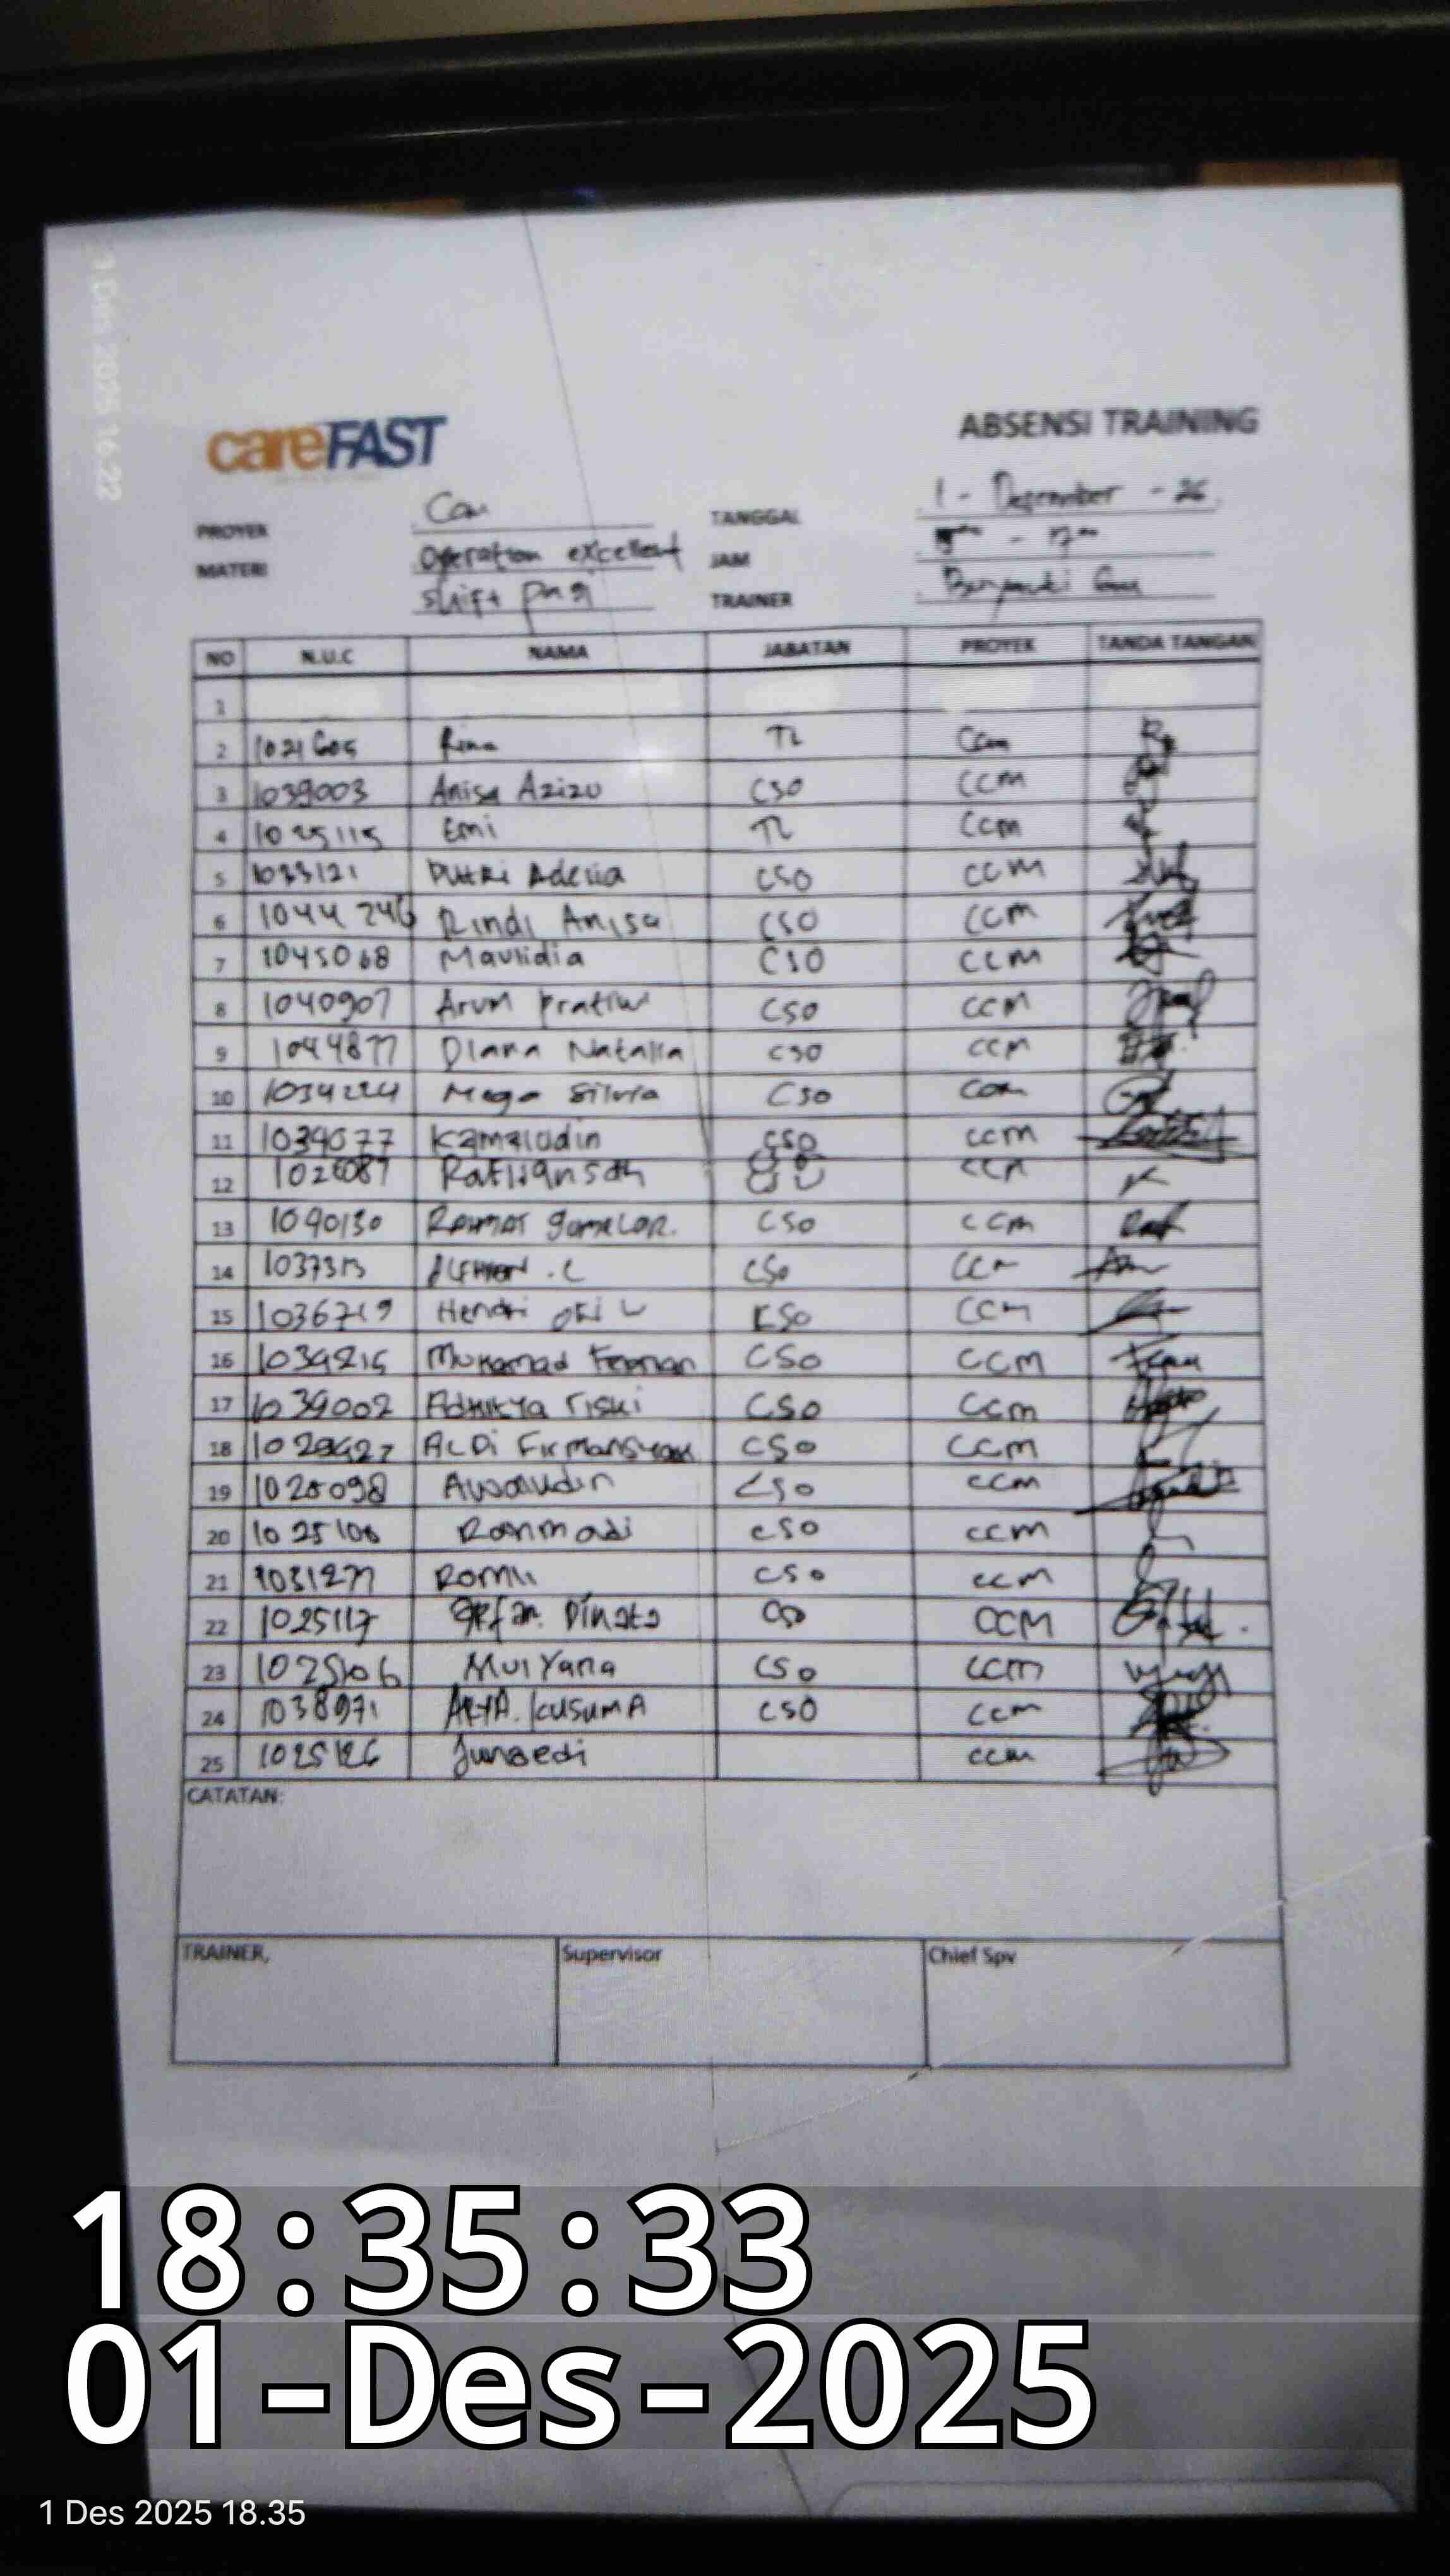 1 Des 2025 16.22
careFAST
ABSENSI TRAINING
PROYEK
TANGGAL 1 - Desember -
MATERI Operation excellent JAM
shift pagi TRAINER
NO N.U.C NAMA JABATAN PROYEK TANDA TANGAN
1
2 1021605 Rina TL Ccm
3 1039003 Anisa Azizu CSO CCM
4 1025115 Emi TL Ccm
5 1033121 PUtRi Adelia CSO CCM
6 1044246 Rindi Anisa CSO CCM
7 1045068 Maulidia CSO CCM
8 1040907 Arum Pratiwi CSO CCM
9 1044877 Diana Natalia CSO CCM
10 1034224 Mega Silvia CSO
11 1034077 Kamaludin CSO CCM
12 CCM
13 1040130 CSO CCM
14 CSO CCM
15 1036719 Hendri CSO CCM
16 1034215 Muhamad CSO CCM
17 1039002 Aditya riski CSO CCM
18 ALDi Firmansyah CSO CCM
19 CSO CCM
20 1025100 CSO CCM
21 1031271 Romli CSO CCM
22 1025117 Dinata CSO CCM
23 1025106 MulYana CSO CCM
24 1038971 ARYA. KUSUMA CSO CCM
25 1025126 Junaedi CCM
CATATAN:
TRAINER, Supervisor Chief Spv
18:35:33
01-Des-2025
1 Des 2025 18.35